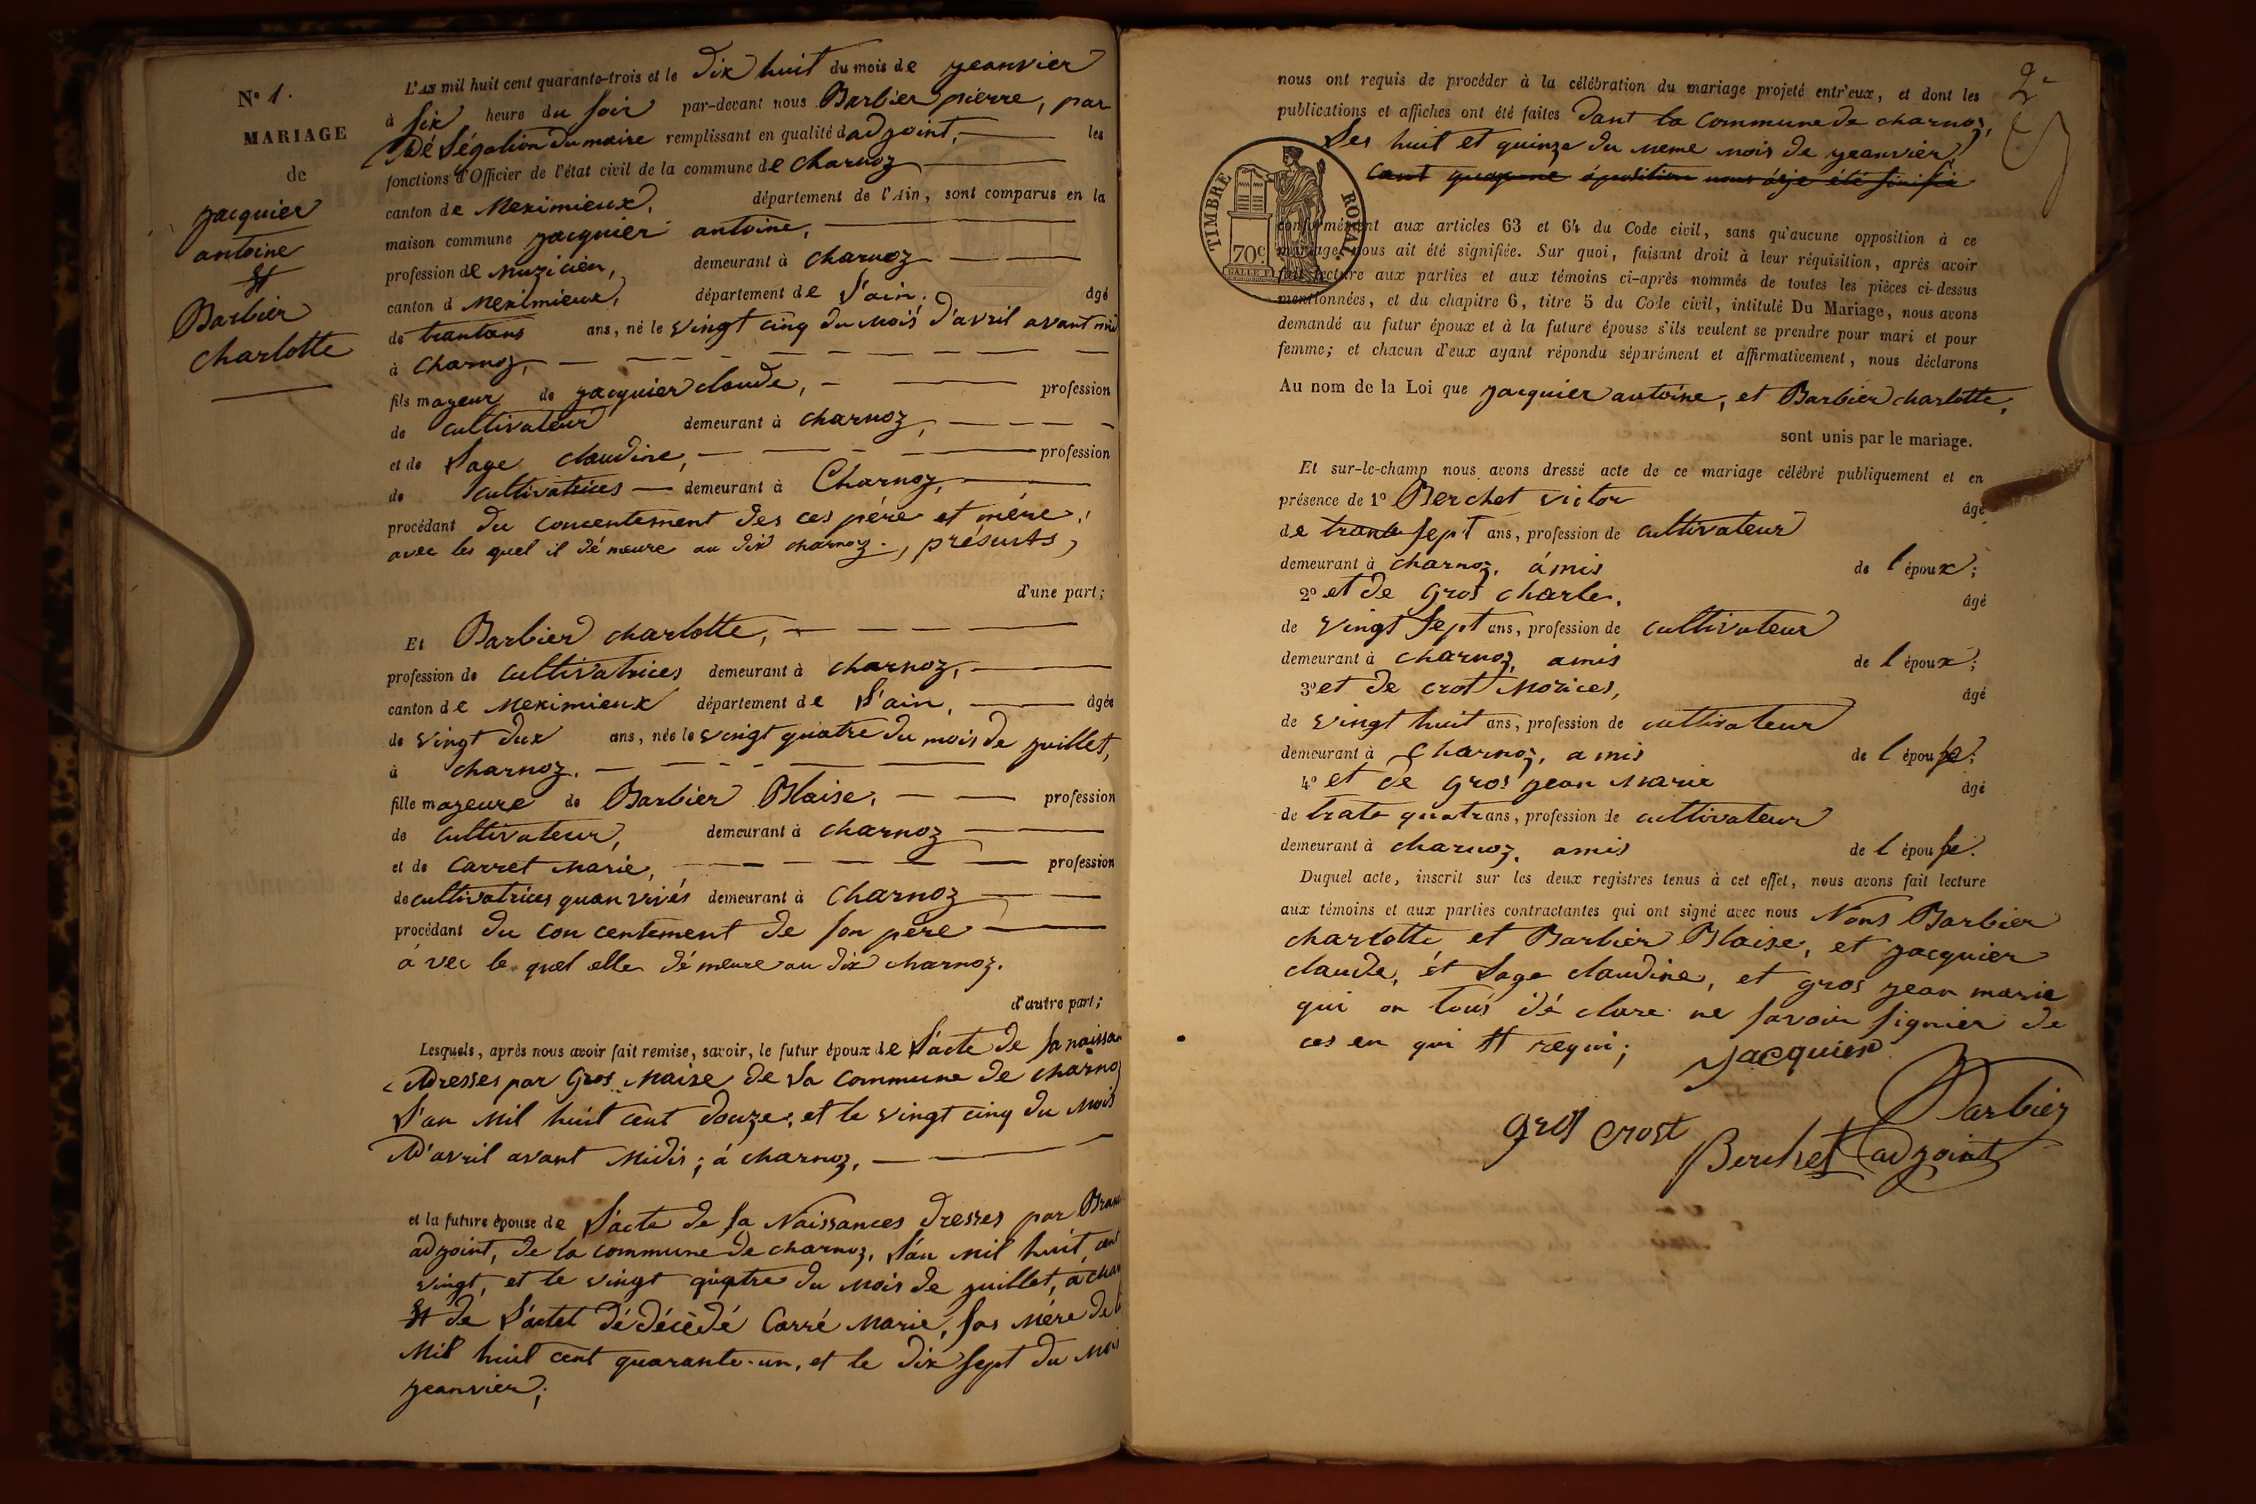 N° 1.
MARIAGE
de
jacquier
antoine
et
Barbier
charlotte
L'AN mil huit cent quarante-trois et le dix huit du mois de jeanvier
à six heure du soir par-devant nous Barbier pierre, par
Délégation du maire remplissant en qualité d adjoint, les
fonctions d'Officier de l'état civil de la commune de charnoz
canton de Meximieux, département de l'Ain, sont comparus en la
maison commune jacquier antoine,
profession de muzicien, demeurant à charnoz
canton d Meximieux, département de l'ain. âgé
de trantans ans, né le vingt cinq du mois d'avril avant midi
à charnoz,
fils mageur de jacquier claude, profession
de cultivateur demeurant à charnoz,
et de Sage claudine, profession
de cultivatrices demeurant à Charnoz,
procédant du concentement des ces père et mère,
avec les quel il démeure au dix charnoz., présents,
d'une part;
Et Barbier charlotte,
profession de cultivatrices demeurant à charnoz,
canton de Meximieux département de l'ain, âgée
de vingt dux ans, née le vingt quatre du mois de juillet,
à charnoz.
fille mageure de Barbier Blaise, profession
de cultivateur, demeurant à charnoz
et de Carret Marie, profession
de cultivatrices quan vivés demeurant à Charnoz
procédant du con centement de son père
à vec le quel elle démeure au dix charnoz.
d'autre part;
Lesquels, après nous avoir fait remise, savoir, le futur époux de l'acte de sa naissan
Adresses par Gros Maize de la commune de charnoz
l'an mil huit cent douze, et le vingt cinq du mois
D'avril avant Midis; à charnoz,
et la future épouse de l'acte de sa Naissances dresses par Bran
adjoint, de la commune de charnoz, l'an mil huit cent
vingt, et le vingt quatre du mois de juillet, à char
Et de l'actet dé décèdé Carré Marie, sas Mére de l
Mil huit cent quarante-un, et le dix sept du mois
jeanvier;
2e
nous ont requis de procéder à la célébration du mariage projeté entr'eux, et dont les
publications et affiches ont été faites dant la Commune de charnoz,
Les huit et quinze du meme mois de jeanvier,
TIMBRE ROYAL
70c.
conformément aux articles 63 et 64 du Code civil, sans qu'aucune opposition à ce
mariage, nous ait été signifiée. Sur quoi, faisant droit à leur réquisition, après avoir
fait lecture aux parties et aux témoins ci-après nommés de toutes les pièces ci-dessus
mentionnées, et du chapitre 6, titre 5 du Code civil, intitulé Du Mariage, nous avons
demandé au futur époux et à la future épouse s'ils veulent se prendre pour mari et pour
femme; et chacun d'eux ayant répondu séparément et affirmativement, nous déclarons
Au nom de la Loi que jacquier antoine, et Barbier charlotte,
sont unis par le mariage.
Et sur-le-champ nous avons dressé acte de ce mariage célébré publiquement et en
présence de 1° Berchet victor âgé
de trante sept ans, profession de cultivateur
demeurant à charnoz, ámis de l époux;
2° et de Gros charle, âgé
de vingt sept ans, profession de cultivateur
demeurant à charnoz, amis de l époux;
3° et de crot Morices, âgé
de vingt huit ans, profession de cultivateur
demeurant à Charnoz, amis de l épouse;
4° et de gros jean Marie âgé
de trate quatr ans, profession de cultivateur
demeurant à charnoz, amis de l épouse.
Duquel acte, inscrit sur les deux registres tenus à cet effet, nous avons fait lecture
aux témoins et aux parties contractantes qui ont signé avec nous Nons Barbier
charlotte et Barbier Blaise, et jacquier
claude, ét Sage claudine, et gros jean marie
qui on tous dé clare ne savoir signier de
ces en qui Et requi;
jacquier
Barbier
gros crost
Berchet adjoint